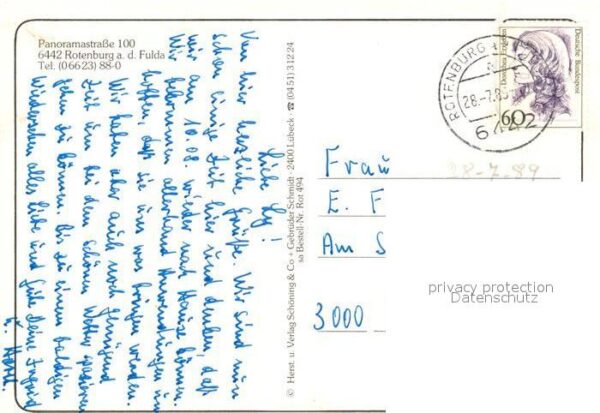 Panoramastraße 100
6442 Rotenburg a. d. Fulda
Tel. (06623) 88-0
Liebe
Von hier herzliche Grüße. Wir sind nun
schon einige Zeit hier und denken, daß
wir am 10.08. wieder nach Hause können.
Wir bekommen allerhand Anwendungen und
hoffen, daß sie uns was bringen werden.
Wir haben aber auch noch genügend
Zeit um bei dem schönen Wetter spazieren
gehen zu können. Bis zu einem baldigen
Wiedersehen alles Liebe und Gute Deine Ingrid
u. Horst
© Herst. u. Verlag Schöning & Co + Gebrüder Schmidt · 2400 Lübeck · ☎ (0451) 31224
sa Bestell-Nr. Rot 494
ROTENBURG
28.-7.89
6442
60
Deutsche Bundespost
28-7-89
Frau
E. F
Am S
3000
privacy protection
Datenschutz